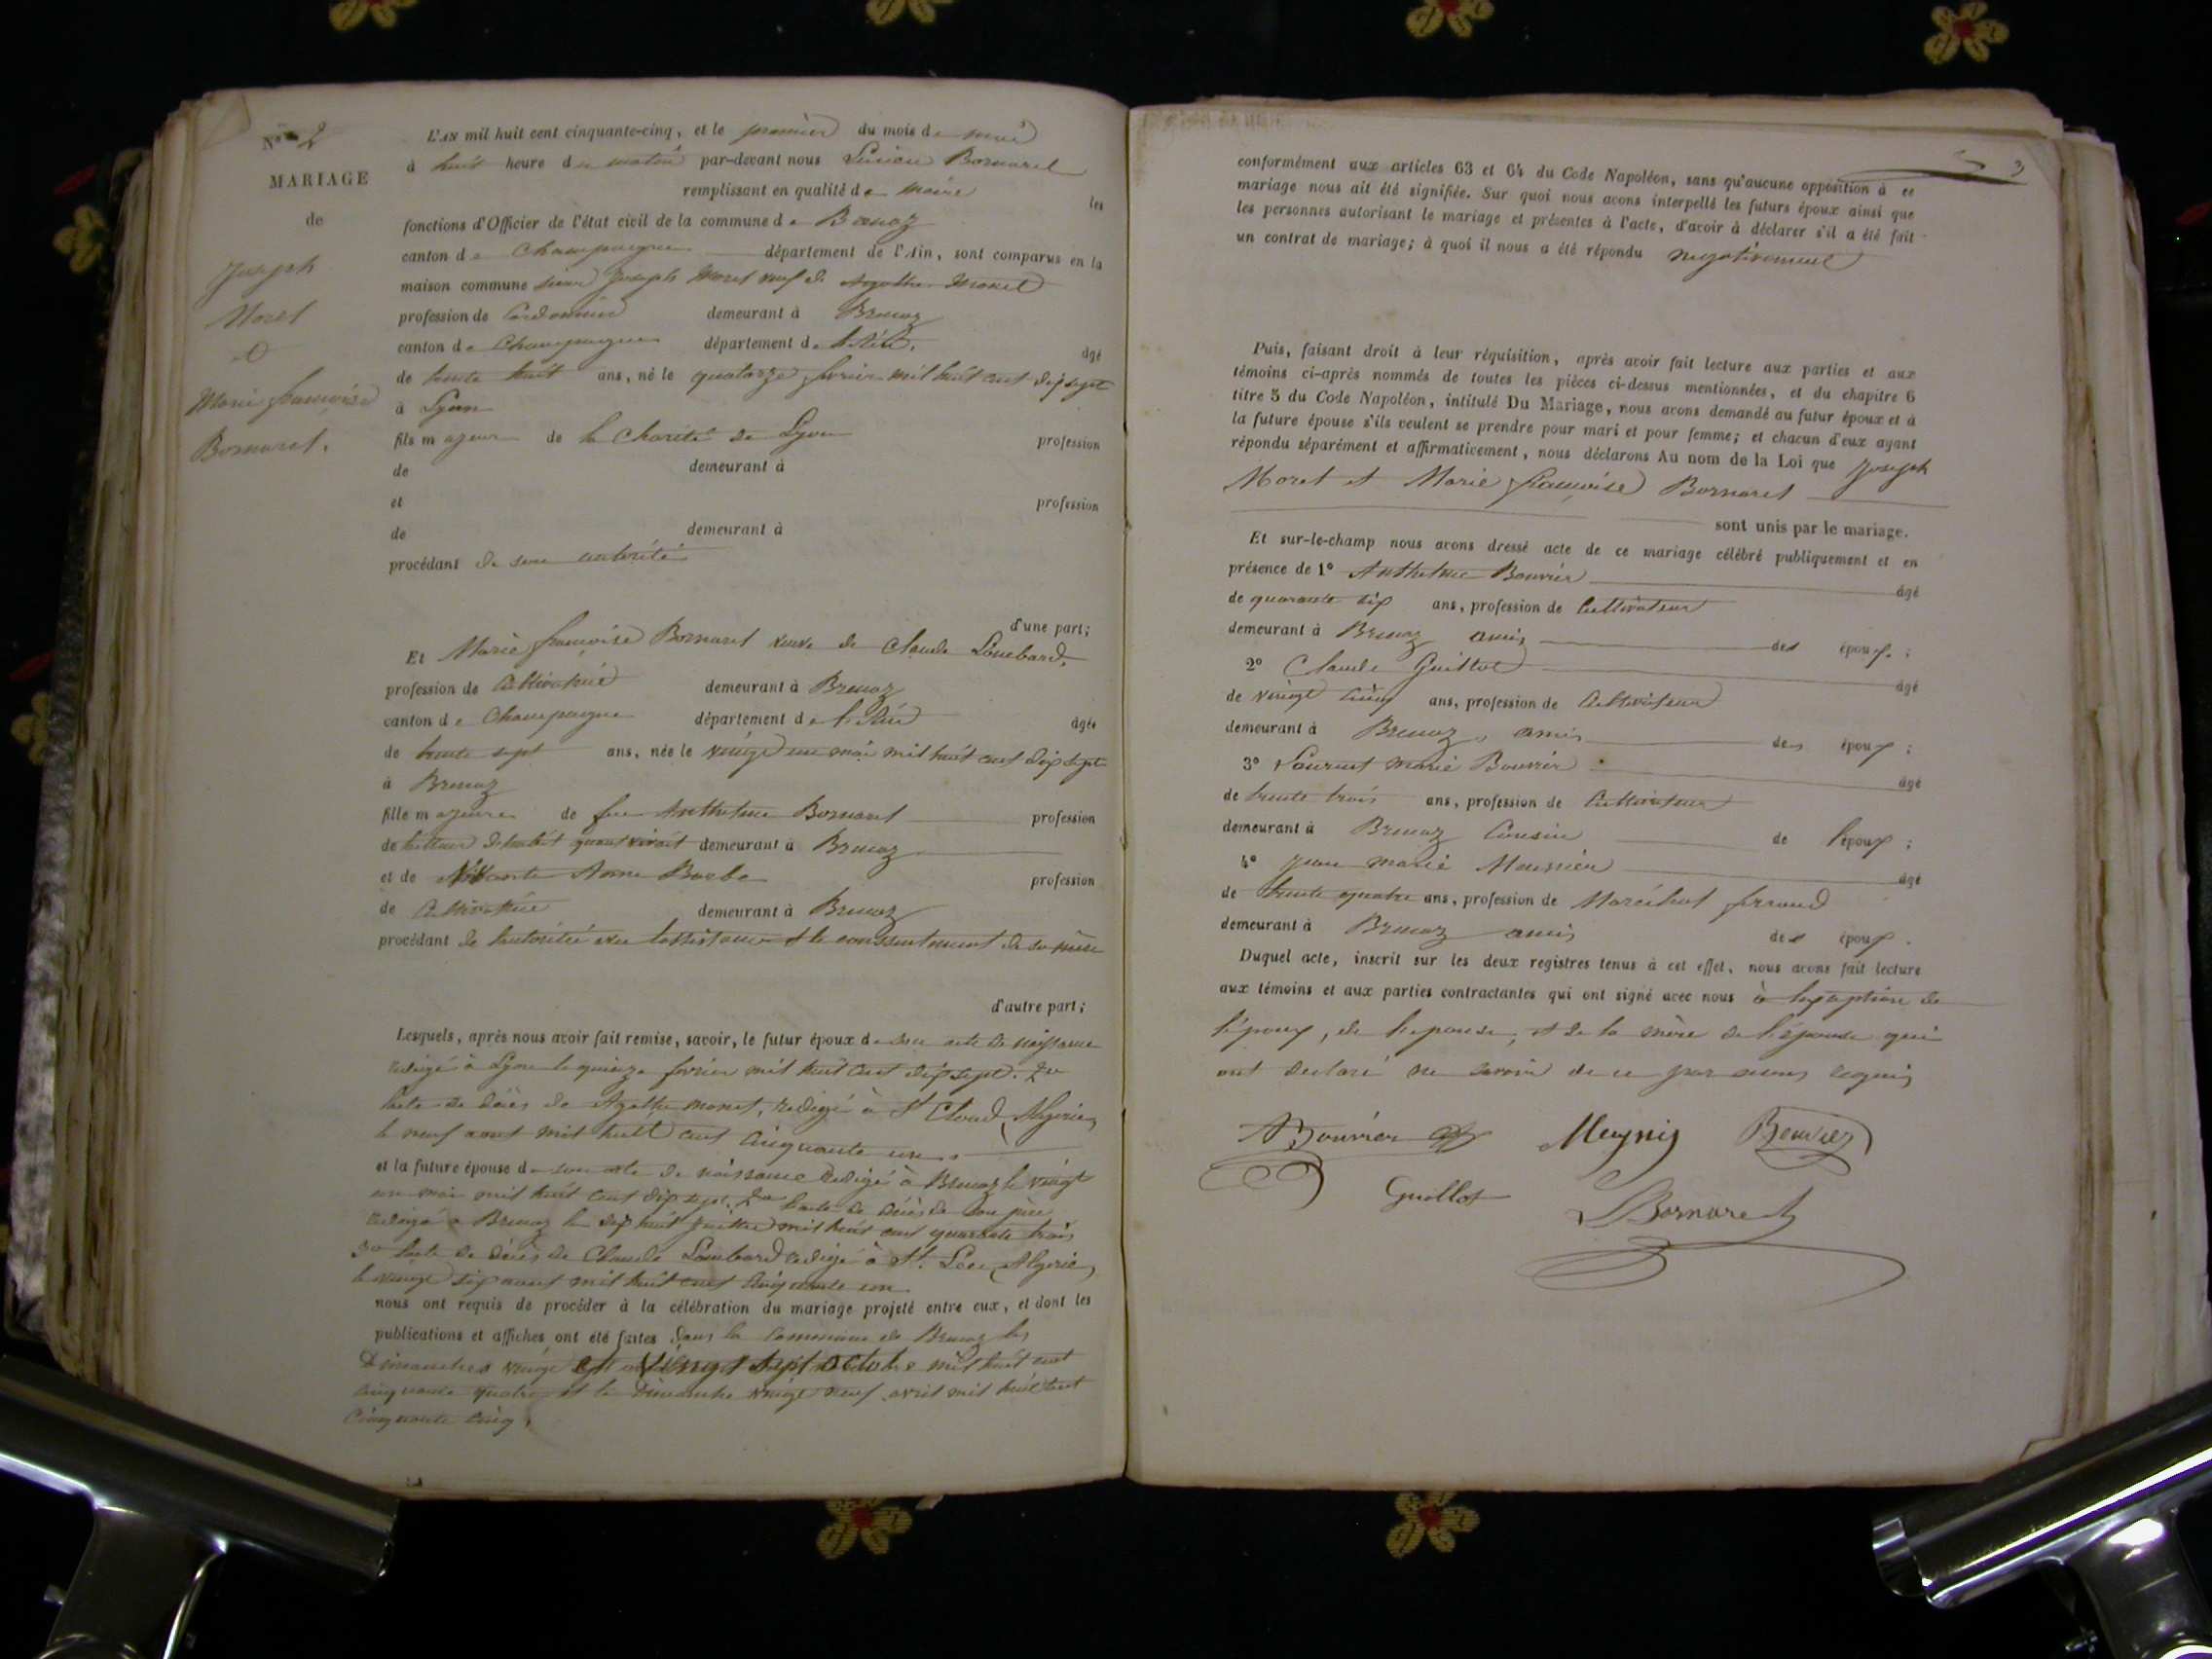 No 2
MARIAGE
de
Joseph
Moret
et
Marie françoise
Bornaret.
L'AN mil huit cent cinquante-cinq, et le premier du mois de mai
à huit heure du matin par-devant nous Lucien Bornarel
remplissant en qualité de maire les
fonctions d'Officier de l'état civil de la commune de Brenaz
canton de Champagne département de l'Ain, sont comparus en la
maison commune sieur Joseph Moret veuf de Agathe Monet
profession de Cordonnier demeurant à Brenaz
canton de Champagne département de l'Ain. âgé
de trente huit ans, né le quatorze février mil huit cent dix sept
à Lyon
fils majeur de la Charité de Lyon profession
de demeurant à
et profession
de demeurant à
procédant de son autorité
d'une part;
Et Marie françoise Bornaret veuve de Claude Lombard,
profession de Cultivatrice demeurant à Brenaz
canton de Champagne département de l'Ain âgée
de trente sept ans, née le vingt un mai mil huit cent dix sept
à Brenaz
fille majeure de feu Anthelme Bornaret profession
de quand vivait demeurant à Brenaz
et de vivante Anne Barbe profession
de Cultivatrice demeurant à Brenaz
procédant de l'autorité avec l'assistance et le consentement de sa mère
d'autre part;
Lesquels, après nous avoir fait remise, savoir, le futur époux de son acte de naissance
rédigé à Lyon le quinze février mil huit cent dix sept. 2o
l'acte de décès de Agathe monet, rédigé à St Cloud, Algérie,
le neuf aout mil huit cent cinquante un.
et la future épouse de son acte de naissance rédigé à Brenaz le vingt
un mai mil huit cent dix sept. 2o l'acte de décès de son père
rédigé à Brenaz le dix huit mil huit cent quarante trois
3o l'acte de décès de Claude Lombard rédigé à St. Leu, Algérie,
le vingt six aout mil huit cent cinquante un
nous ont requis de procéder à la célébration du mariage projeté entre eux, et dont les
publications et affiches ont été faites dans la commune de Brenaz les
Dimanches vingt Vingt sept octobre mil huit cent
cinquante quatre et le Dimanche vingt neuf avril mil huit cent
cinquante cinq.
3
conformément aux articles 63 et 64 du Code Napoléon, sans qu'aucune opposition à ce
mariage nous ait été signifiée. Sur quoi nous avons interpellé les futurs époux ainsi que
les personnes autorisant le mariage et présentes à l'acte, d'avoir à déclarer s'il a été fait
un contrat de mariage; à quoi il nous a été répondu negativement
Puis, faisant droit à leur réquisition, après avoir fait lecture aux parties et aux
témoins ci-après nommés de toutes les pièces ci-dessus mentionnées, et du chapitre 6
titre 5 du Code Napoléon, intitulé Du Mariage, nous avons demandé au futur époux et à
la future épouse s'ils veulent se prendre pour mari et pour femme; et chacun d'eux ayant
répondu séparément et affirmativement, nous déclarons Au nom de la Loi que Joseph
Moret et Marie françoise Bornaret
sont unis par le mariage.
Et sur-le-champ nous avons dressé acte de ce mariage célébré publiquement et en
présence de 1° Anthelme Bouvier âgé
de quarante six ans, profession de Cultivateur
demeurant à Brenaz amis des époux.;
2° Claude Guillot âgé
de vingt cinq ans, profession de Cultivateur
demeurant à Brenaz, amis des époux;
3° Laurent Marie Bouvier âgé
de trente trois ans, profession de Cultivateur
demeurant à Brenaz Cousin de l'époux;
4° Jean marie âgé
de trente quatre ans, profession de Maréchal ferrand
demeurant à Brenaz amis des époux.
Duquel acte, inscrit sur les deux registres tenus à cet effet, nous avons fait lecture
aux témoins et aux parties contractantes qui ont signé avec nous à l'exception de
l'époux, de l'epouse, et de la mère de l'épouse qui
ont declaré ne savoir de ce par nous requis
ABouvier Meynis Bouvier
Guillot LBornarel